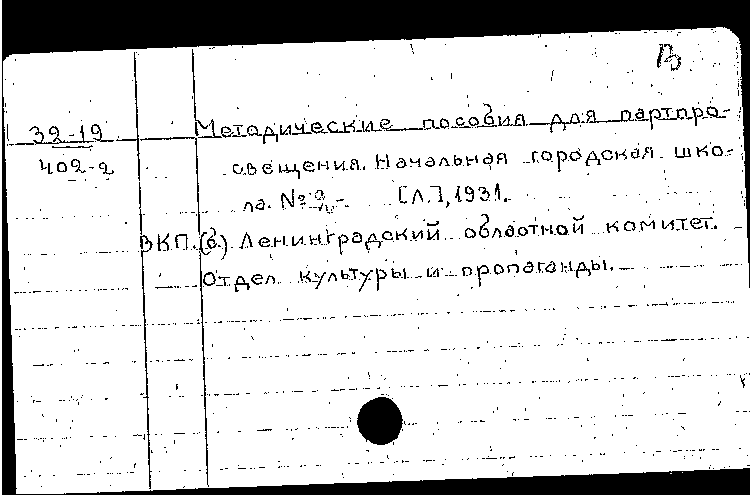 В
32-19 Методические пособия для партпро-
402-2 свещения. Начальная городская шко-
ла. № 2/ - [Л.], 1931.
ВКП.(б.) Ленинградский областной комитет.
Отдел культуры и пропаганды.